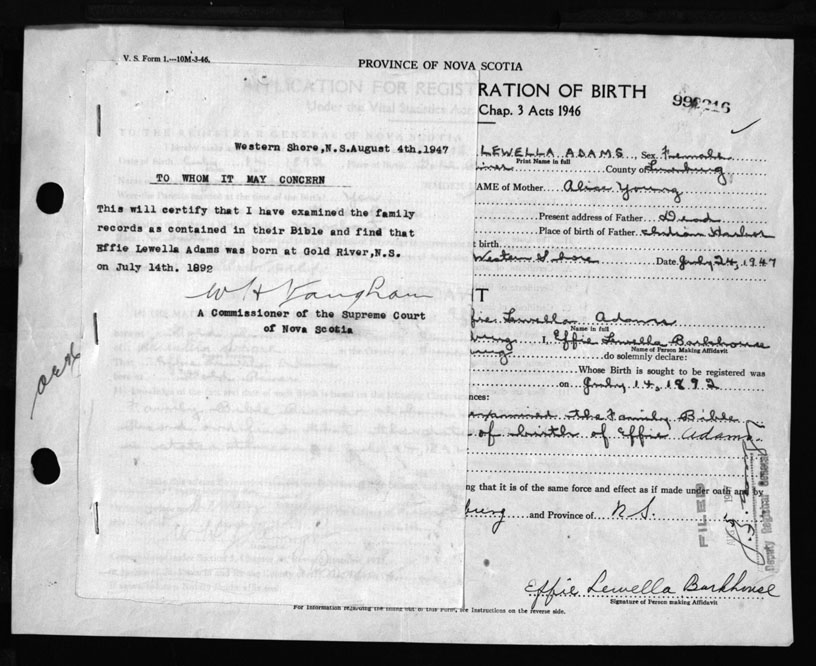 V. S. Form 1.—10M-3-46.
PROVINCE OF NOVA SCOTIA
RATION OF BIRTH
Chap. 3 Acts 1946
Western Shore, N.S. August 4th, 1947
TO WHOM IT MAY CONCERN
This will certify that I have examined the family
records as contained in their Bible and find that
Effie Lewella Adams was born at Gold River, N.S.
on July 14th. 1892
W H Vaughan
A Commissioner of the Supreme Court
of Nova Scotia
LEWELLA ADAMS Sex Female
Print Name in full
County of Lunenburg
AME of Mother Alice Young
Present address of Father Dead
Place of birth of Father Indian Harbor
t birth
Western Shore Date July 24, 1947
T
Effie Lewella Adams
Name in full
I, Effie Lewella Barkhouse
Name of Person Making Affidavit
do solemnly declare:
Whose Birth is sought to be registered was
on July 14, 1892
nces:
examined the Family Bible
of birth of Effie Adams
ng that it is of the same force and effect as if made under oath and by
burg and Province of N.S.
FILED
Deputy Registrar General
Effie Lewella Barkhouse
Signature of Person making Affidavit
For Information regarding the filling out of this Form, see Instructions on the reverse side.